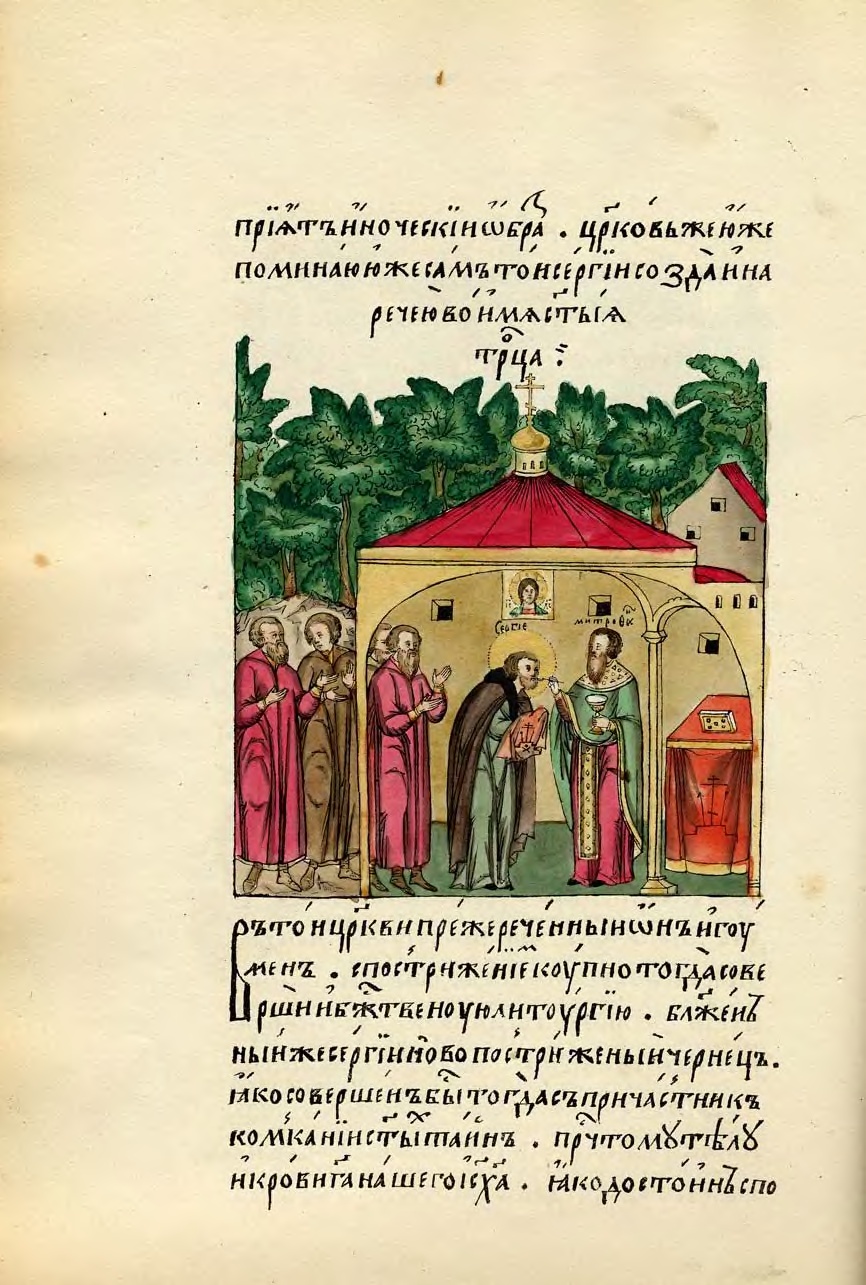 прїѧтъ иноческїи ѡбра . црковь же юже
поминаю юже самъ той сергїи созда и на
рече ю во имѧ стыꙗ
трца
Сергїе
митроѳа
въ той цркви преже реченныи ѡнъ игоу
менъ . с пострижениⷨе коупно тогда сове
рши и бжтвеноую литоургїю . блжен
ныи же сергїи новопостриженыи чернецъ .
ꙗко совершенъ бы тогда съпричастникъ
комканїи стыⷯ таинъ . пртомꙋ тѣлꙋ
и крови га нашего ісха . ꙗко достоинъ спо